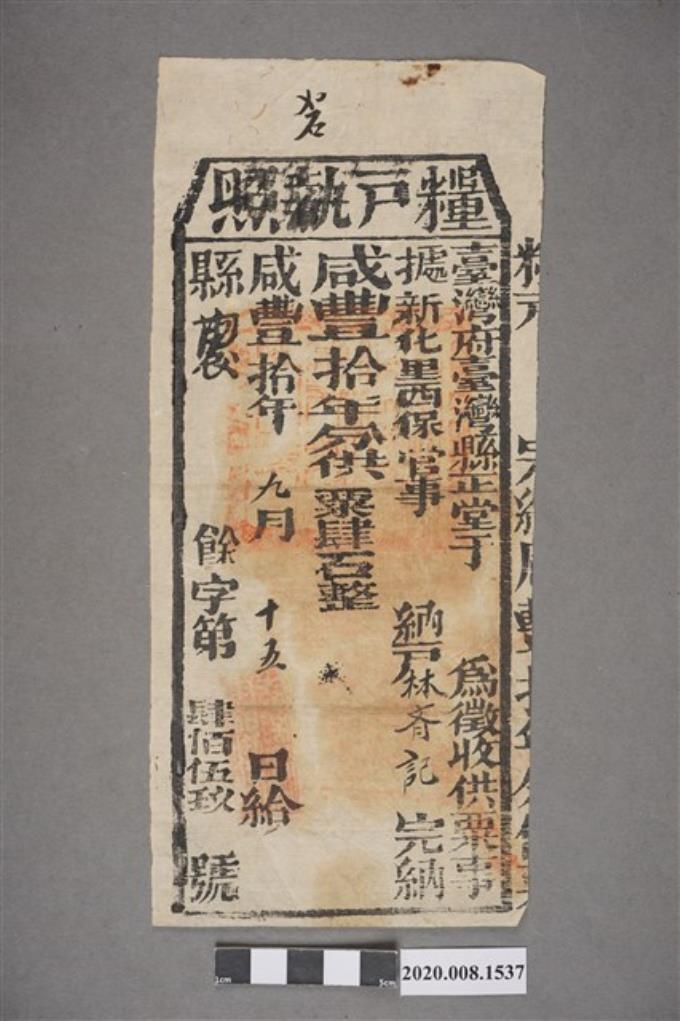 糧戶執照
臺灣府臺灣縣正堂于 為徵收供粟事
據新化里西保官事 納戶林齊記 完納
咸豐拾年分供粟肆石整
咸豐拾年 九月 十五 日給
縣 餘字第 肆佰伍玖 號
2020.008.1537
1cm
5cm